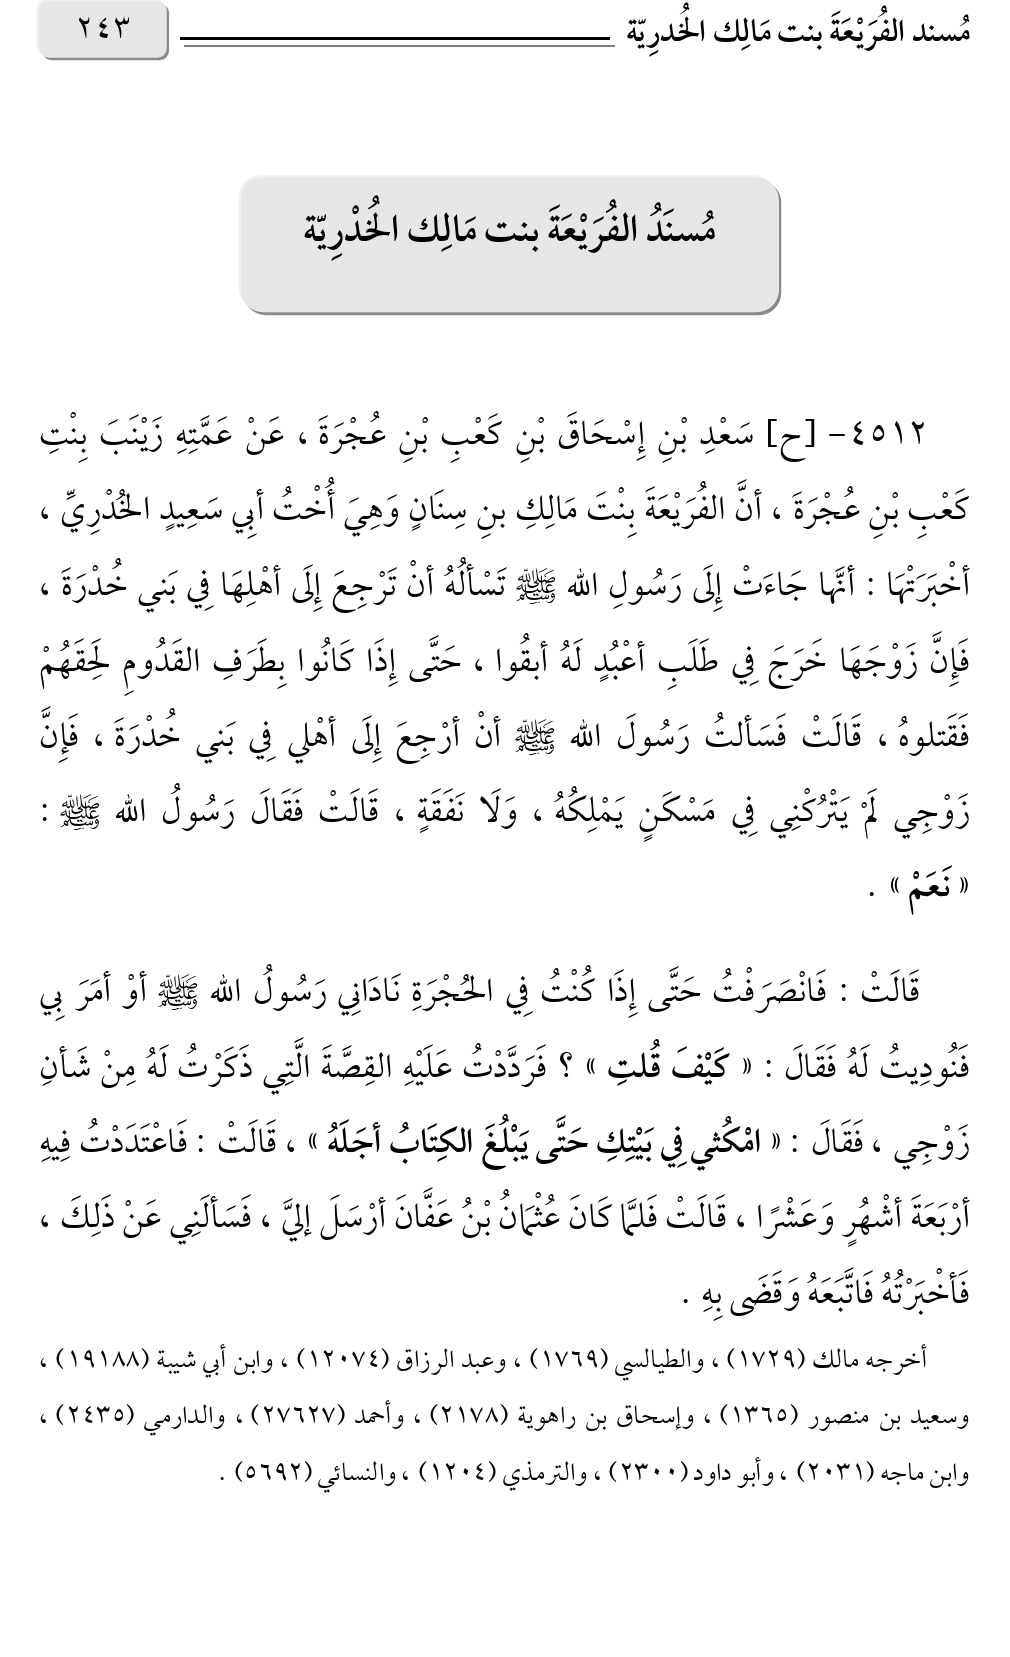 مُسند الفُرَيْعَةَ بنت مَالِك الخُدرِيّة
٢٤٣
مُسنَدُ الفُرَيْعَةَ بنت مَالِك الخُذْرِيّة
٤٥١٢- [ح] سَعْدِ بْنِ إِسْحَاقَ بْنِ كَعْبِ بْنِ عُجْرَةَ ، عَنْ عَمَّتِهِ زَيْنَبَ بِنْتِ
كَعْبِ بْنِ عُجْرَةَ ، أنَّ الفُرَيْعَةَ بِنْتَ مَالِكِ بنِ سِنَانٍ وَهِيَ أُخْتُ أبِي سَعِيدٍ الخُدْرِيِّ ،
أخْبَرَتْهَا : أنَّها جَاءَتْ إِلَى رَسُولِ الله ﷺ تَسْألُهُ أنْ تَرْجِعَ إِلَى أهْلِهَا فِي بَني خُدْرَةَ ،
فَإِنَّ زَوْجَهَا خَرَجَ فِي طَلَبِ أعْبُدٍ لَهُ أبقُوا ، حَتَّى إِذَا كَانُوا بِطَرَفِ القَدُومِ لَحِقَهُمْ
فَقَتلوهُ ، قَالَتْ فَسَألتُ رَسُولَ الله ﷺ أنْ أرْجِعَ إِلَى أهْلي فِي بَني خُدْرَةَ ، فَإِنَّ
زَوْجِي لَمْ يَتْرُكْنِي فِي مَسْكَنٍ يَمْلِكُهُ ، وَلَا نَفَقَةٍ ، قَالَتْ فَقَالَ رَسُولُ الله ﷺ :
« نَعَمْ » .
قَالَتْ : فَانْصَرَفْتُ حَتَّى إِذَا كُنْتُ فِي الحُجْرَةِ نَادَانِي رَسُولُ الله ﷺ أوْ أمَرَ بِي
فَنُودِيتُ لَهُ فَقَالَ : « كَيْفَ قُلتِ » ؟ فَرَدَّدْتُ عَلَيْهِ القِصَّةَ الَّتِي ذَكَرْتُ لَهُ مِنْ شَأنِ
زَوْجِي ، فَقَالَ : « امْكُثي فِي بَيْتِكِ حَتَّى يَبْلُغَ الكِتَابُ أجَلَهُ » ، قَالَتْ : فَاعْتَدَدْتُ فِيهِ
أرْبَعَةَ أشْهُرٍ وَعَشْرًا ، قَالَتْ فَلمَّا كَانَ عُثْمَانُ بْنُ عَفَّانَ أرْسَلَ إليَّ ، فَسَألَنِي عَنْ ذَلِكَ ،
فَأخْبَرْتُهُ فَاتَّبَعَهُ وَقَضَى بِهِ .
أخرجه مالك (١٧٢٩) ، والطيالسي (١٧٦٩) ، وعبد الرزاق (١٢٠٧٤) ، وابن أبي شيبة (١٩١٨٨) ،
وسعيد بن منصور (١٣٦٥) ، وإسحاق بن راهوية (٢١٧٨) ، وأحمد (٢٧٦٢٧) ، والدارمي (٢٤٣٥) ،
وابن ماجه (٢٠٣١) ، وأبو داود (٢٣٠٠) ، والترمذي (١٢٠٤) ، والنسائي (٥٦٩٢) .